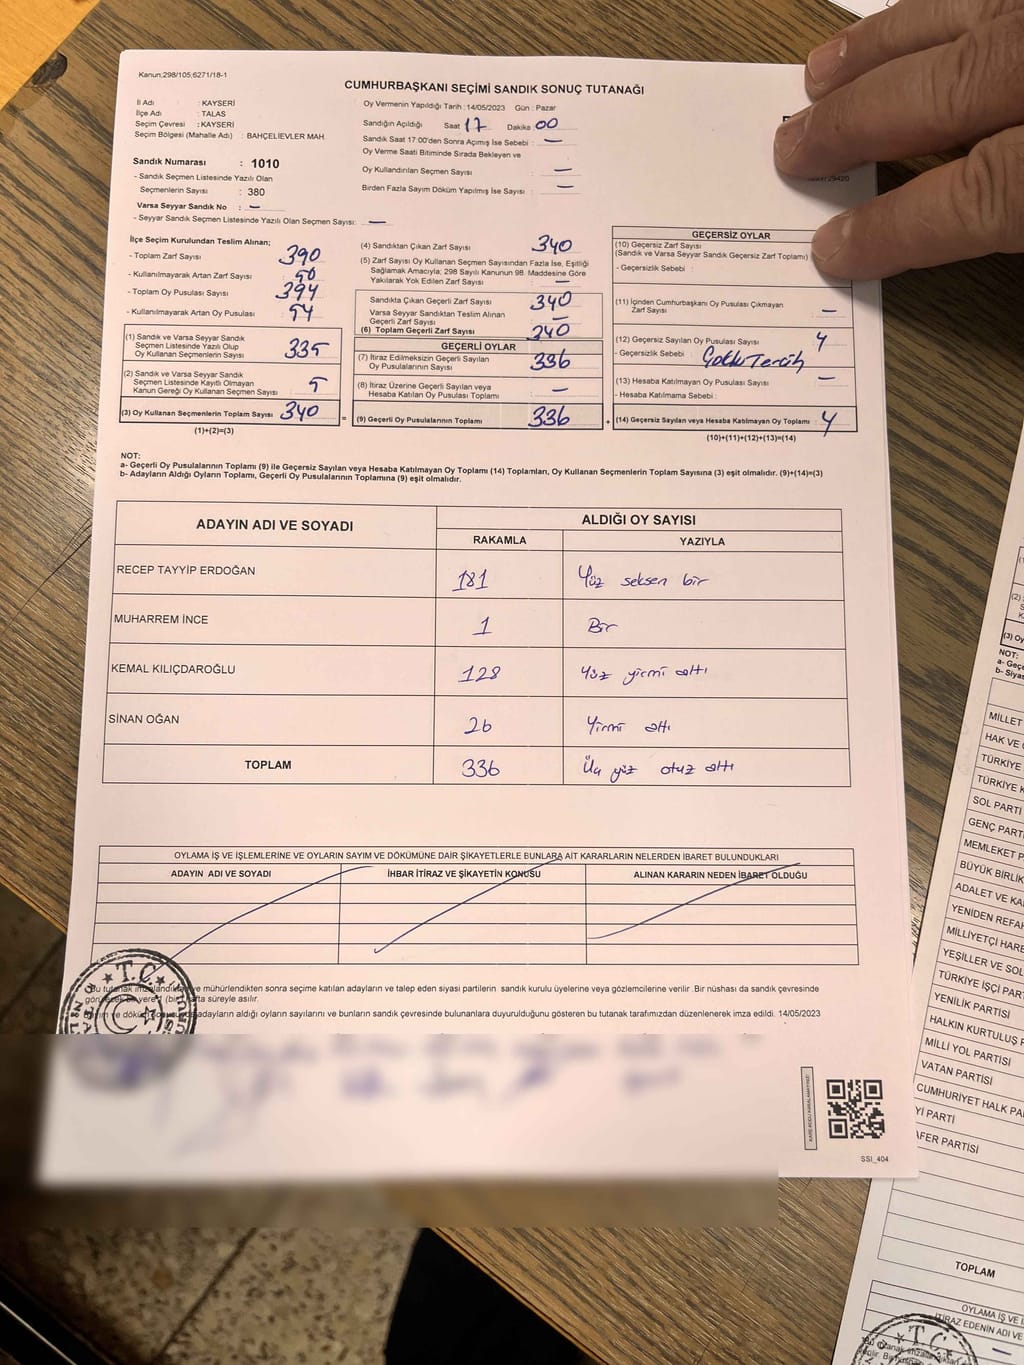 Kanun,298/105;6271/18-1
CUMHURBAŞKANI SEÇİMİ SANDIK SONUÇ TUTANAĞI
İl Adı : KAYSERİ
İlçe Adı : TALAS
Seçim Çevresi : KAYSERİ
Seçim Bölgesi (Mahalle Adı) : BAHÇELİEVLER MAH.
Sandık Numarası : 1010
- Sandık Seçmen Listesinde Yazılı Olan
Seçmenlerin Sayısı : 380
Varsa Seyyar Sandık No : –
- Seyyar Sandık Seçmen Listesinde Yazılı Olan Seçmen Sayısı: –
Oy Vermenin Yapıldığı Tarih : 14/05/2023 Gün : Pazar
Sandığın Açıldığı Saat 17 Dakika 00
Sandık Saat 17:00'den Sonra Açımış İse Sebebi : –
Oy Verme Saati Bitiminde Sırada Bekleyen ve
Oy Kullandırılan Seçmen Sayısı : –
Birden Fazla Sayım Döküm Yapılmış İse Sayısı : –
İlçe Seçim Kurulundan Teslim Alınan;
- Toplam Zarf Sayısı : 390
- Kullanılmayarak Artan Zarf Sayısı : 50
- Toplam Oy Pusulası Sayısı : 394
- Kullanılmayarak Artan Oy Pusulası : 54
(1) Sandık ve Varsa Seyyar Sandık
Seçmen Listesinde Yazılı Olup
Oy Kullanan Seçmenlerin Sayısı 335
(2) Sandık ve Varsa Seyyar Sandık
Seçmen Listesinde Kayıtlı Olmayan
Kanun Gereği Oy Kullanan Seçmen Sayısı 5
(3) Oy Kullanan Seçmenlerin Toplam Sayısı 340
(1)+(2)=(3)
(4) Sandıktan Çıkan Zarf Sayısı 340
(5) Zarf Sayısı Oy Kullanan Seçmen Sayısından Fazla İse, Eşitliği
Sağlamak Amacıyla; 298 Sayılı Kanunun 98. Maddesine Göre
Yakılarak Yok Edilen Zarf Sayısı : –
Sandıkta Çıkan Geçerli Zarf Sayısı 340
Varsa Seyyar Sandıktan Teslim Alınan
Geçerli Zarf Sayısı –
(6) Toplam Geçerli Zarf Sayısı 340
GEÇERLİ OYLAR
(7) İtiraz Edilmeksizin Geçerli Sayılan
Oy Pusulalarının Sayısı 336
(8) İtiraz Üzerine Geçerli Sayılan veya
Hesaba Katılan Oy Pusulası Toplamı –
= (9) Geçerli Oy Pusulalarının Toplamı 336
GEÇERSİZ OYLAR
(10) Geçersiz Zarf Sayısı
(Sandık ve Varsa Seyyar Sandık Geçersiz Zarf Toplamı)
- Geçersizlik Sebebi :
(11) İçinden Cumhurbaşkanı Oy Pusulası Çıkmayan
Zarf Sayısı –
(12) Geçersiz Sayılan Oy Pusulası Sayısı 4
- Geçersizlik Sebebi : Çoklu Tercih
(13) Hesaba Katılmayan Oy Pusulası Sayısı –
- Hesaba Katılmama Sebebi :
+ (14) Geçersiz Sayılan veya Hesaba Katılmayan Oy Toplamı 4
(10)+(11)+(12)+(13)=(14)
NOT:
a- Geçerli Oy Pusulalarının Toplamı (9) ile Geçersiz Sayılan veya Hesaba Katılmayan Oy Toplamı (14) Toplamları, Oy Kullanan Seçmenlerin Toplam Sayısına (3) eşit olmalıdır. (9)+(14)=(3)
b- Adayların Aldığı Oyların Toplamı, Geçerli Oy Pusulalarının Toplamına (9) eşit olmalıdır.
ADAYIN ADI VE SOYADI ALDIĞI OY SAYISI
RAKAMLA YAZIYLA
RECEP TAYYİP ERDOĞAN 181 Yüz seksen bir
MUHARREM İNCE 1 Bir
KEMAL KILIÇDAROĞLU 128 Yüz yirmi altı
SİNAN OĞAN 26 Yirmi altı
TOPLAM 336 Üç yüz otuz altı
OYLAMA İŞ VE İŞLEMLERİNE VE OYLARIN SAYIM VE DÖKÜMÜNE DAİR ŞİKAYETLERLE BUNLARA AİT KARARLARIN NELERDEN İBARET BULUNDUKLARI
ADAYIN ADI VE SOYADI İHBAR İTİRAZ VE ŞİKAYETİN KONUSU ALINAN KARARIN NEDEN İBARET OLDUĞU
T.C.
Bu tutanak imzalandıktan ve mühürlendikten sonra seçime katılan adayların ve talep eden siyasi partilerin sandık kurulu üyelerine veya gözlemcilerine verilir .Bir nüshası da sandık çevresinde
görülecek bir yere 1 (bir) hafta süreyle asılır.
adayların aldığı oyların sayılarını ve bunların sandık çevresinde bulunanlara duyurulduğunu gösteren bu tutanak tarafımızdan düzenlenerek imza edildi. 14/05/2023
SSI_404
(3) Oy
NOT:
a- Geçe
b- Siyas
MİLLET
HAK VE
TÜRKİYE
TÜRKİYE K
SOL PARTİ
GENÇ PART
MEMLEKET P
BÜYÜK BİRLİK
ADALET VE KA
YENİDEN REFA
MİLLİYETÇİ HARE
YEŞİLLER VE SOL
TÜRKİYE İŞÇİ PART
YENİLİK PARTİSİ
HALKIN KURTULUŞ P
MİLLİ YOL PARTİSİ
VATAN PARTİSİ
CUMHURİYET HALK PA
Yİ PARTİ
AFER PARTİSİ
TOPLAM
OYLAMA İŞ VE İ
İTİRAZ EDENİN ADI VE
T.C.